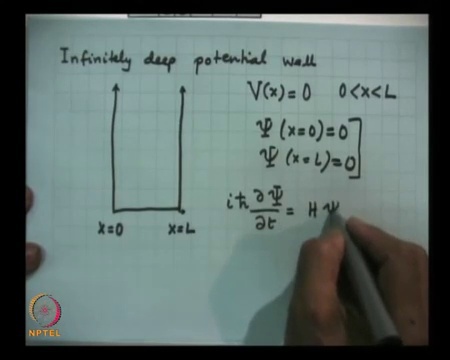 Infinitely deep potential well
V(x)=0 0<x<L
Ψ (x=0)=0
Ψ (x=L)=0
iħ ∂Ψ/∂t = H Ψ
x=0 x=L
NPTEL